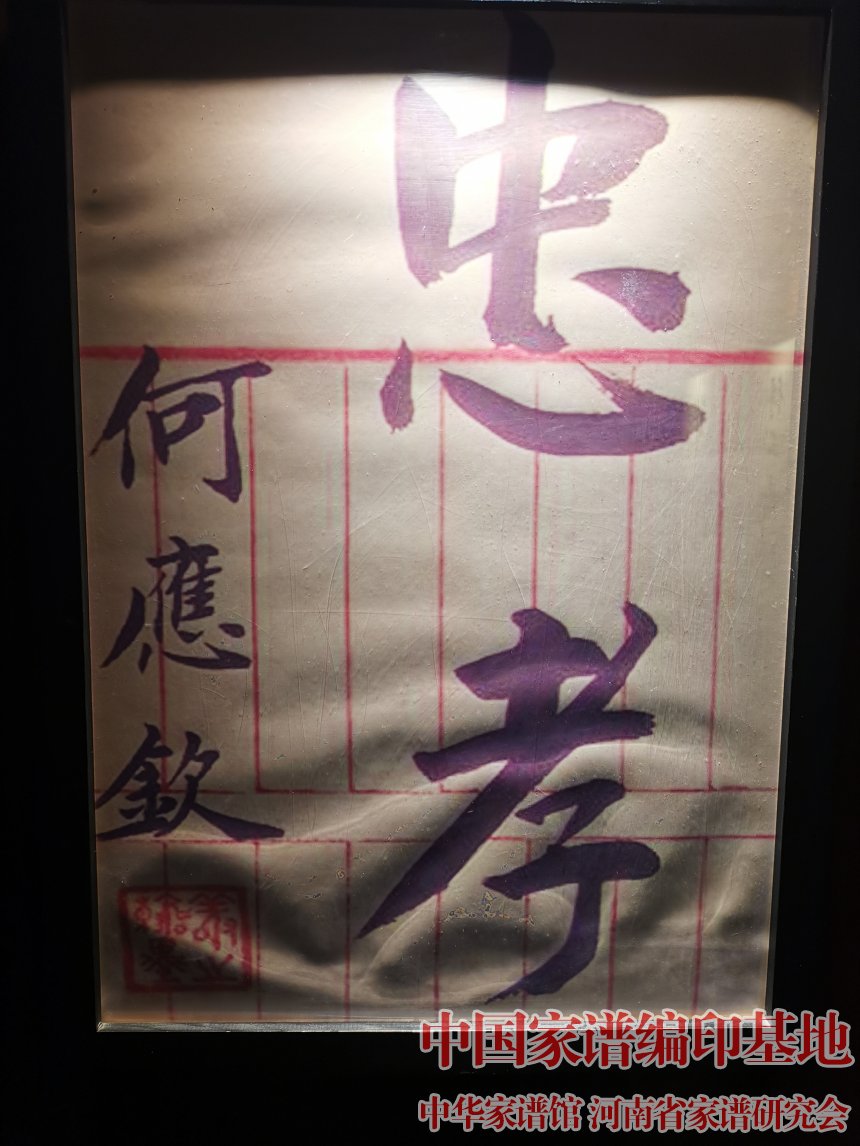 忠孝
何應欽
中国家谱编印基地
中华家谱馆 河南省家谱研究会